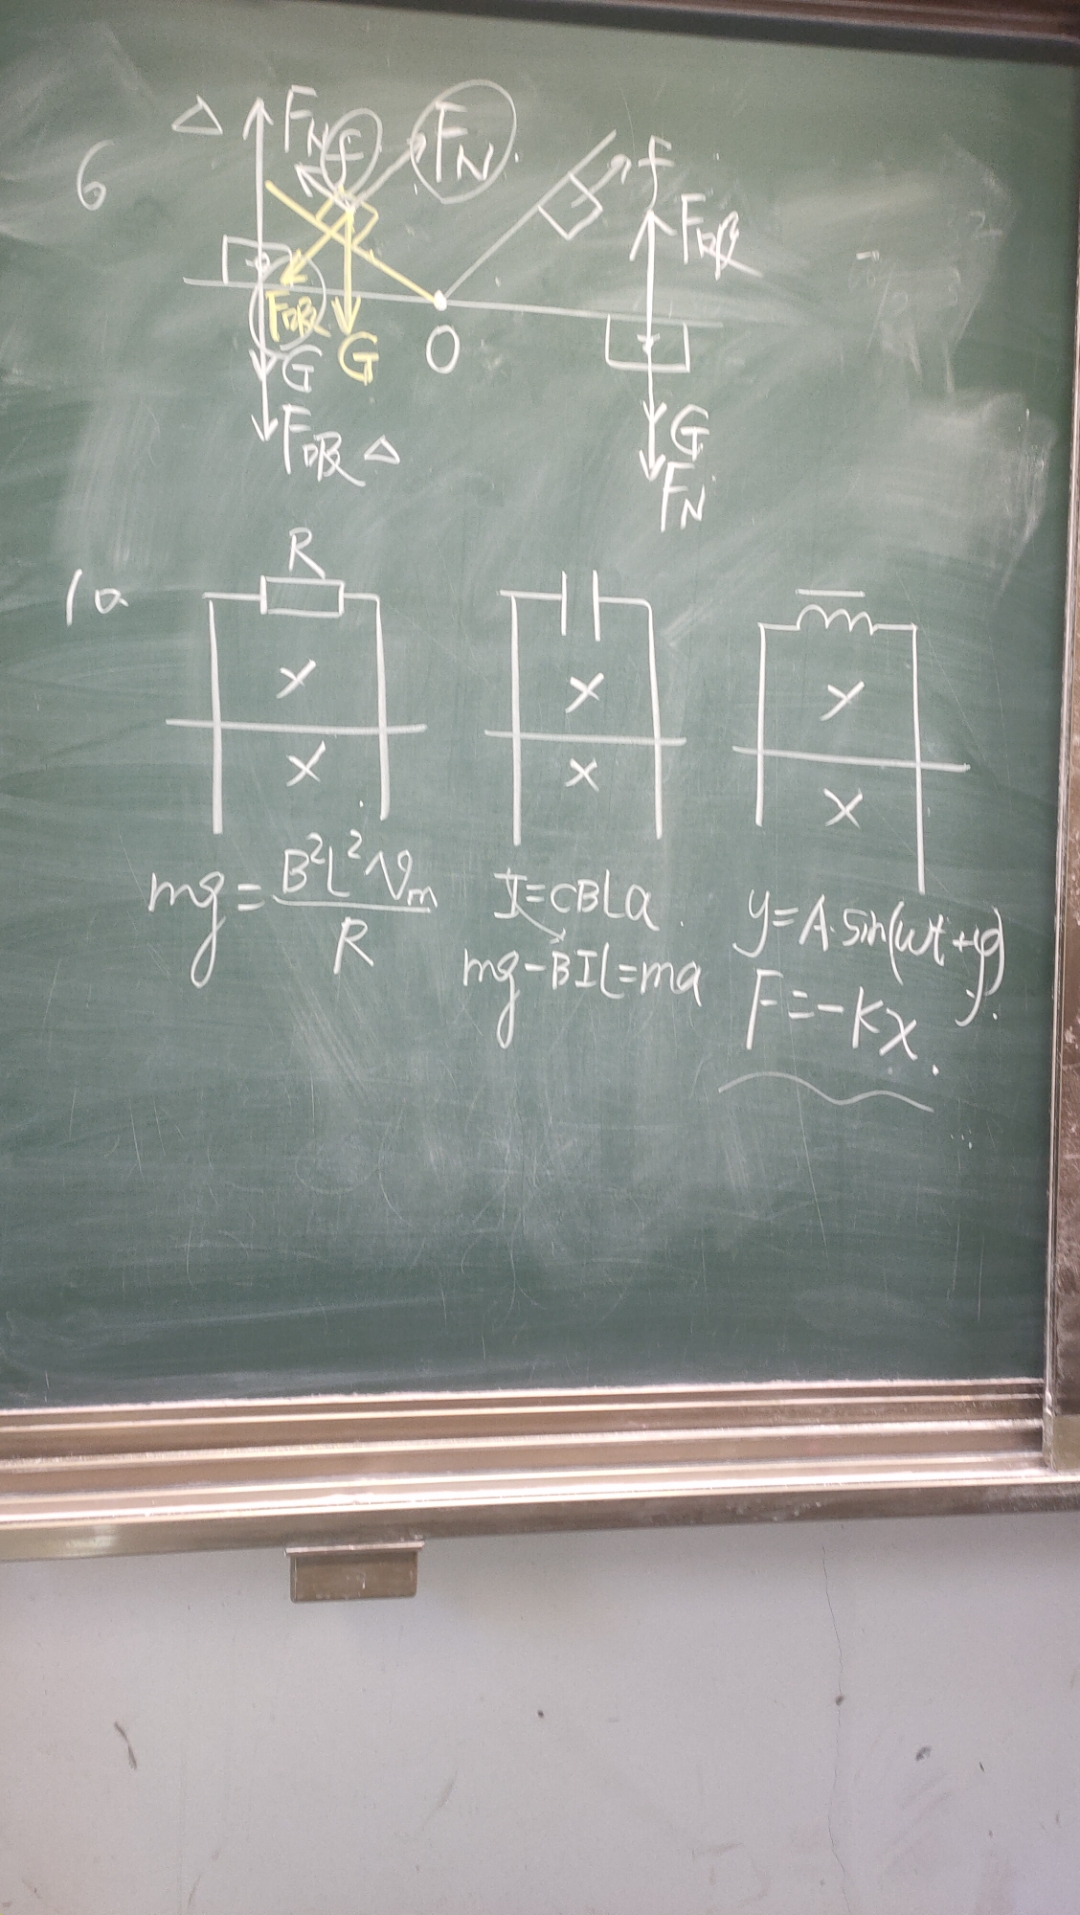 6
△ F_N f F_N
f
F吸
F吸 G O
G
F吸 △
G
F_N
10
R
mg = B²L²v_m / R
I=CBLa
mg-BIL=ma
y=A·sin(ωt+φ)
F=-kx.